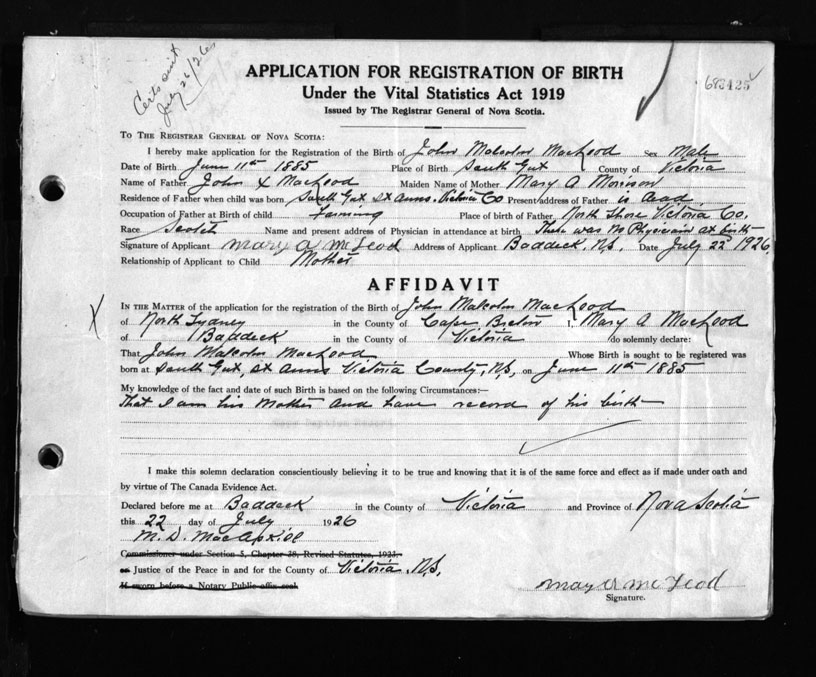 Certs sent
July 26/26
APPLICATION FOR REGISTRATION OF BIRTH
Under the Vital Statistics Act 1919
Issued by The Registrar General of Nova Scotia.
TO THE REGISTRAR GENERAL OF NOVA SCOTIA:
I hereby make application for the Registration of the Birth of John Malcolm MacLeod Sex Male
Date of Birth June 11th 1885 Place of Birth South Gut County of Victoria
Name of Father John X MacLeod Maiden Name of Mother Mary A Morrison
Residence of Father when child was born South Gut St Anns. Victoria Co Present address of Father is dead
Occupation of Father at Birth of child Farming Place of birth of Father North Shore Victoria Co.
Race Scotch Name and present address of Physician in attendance at birth There was No Physician at birth
Signature of Applicant Mary A McLeod Address of Applicant Baddeck, N.S. Date July 22nd 1926.
Relationship of Applicant to Child Mother
AFFIDAVIT
IN THE MATTER of the application for the registration of the Birth of John Malcolm MacLeod
of North Sydney in the County of Cape Breton I, Mary A MacLeod
of Baddeck in the County of Victoria do solemnly declare:
That John Malcolm MacLeod Whose Birth is sought to be registered was
born at South Gut, St Anns Victoria County, N.S, on June 11th 1885
My knowledge of the fact and date of such Birth is based on the following Circumstances:—
That I am his Mother and have record of his birth
I make this solemn declaration conscientiously believing it to be true and knowing that it is of the same force and effect as if made under oath and
by virtue of The Canada Evidence Act.
Declared before me at Baddeck in the County of Victoria and Province of Nova Scotia
this 22 day of July 1926
M. D.
Commissioner under Section 5, Chapter 38, Revised Statutes, 1923.
or Justice of the Peace in and for the County of Victoria, N.S,
If sworn before a Notary Public affix seal
May A McLeod
Signature.